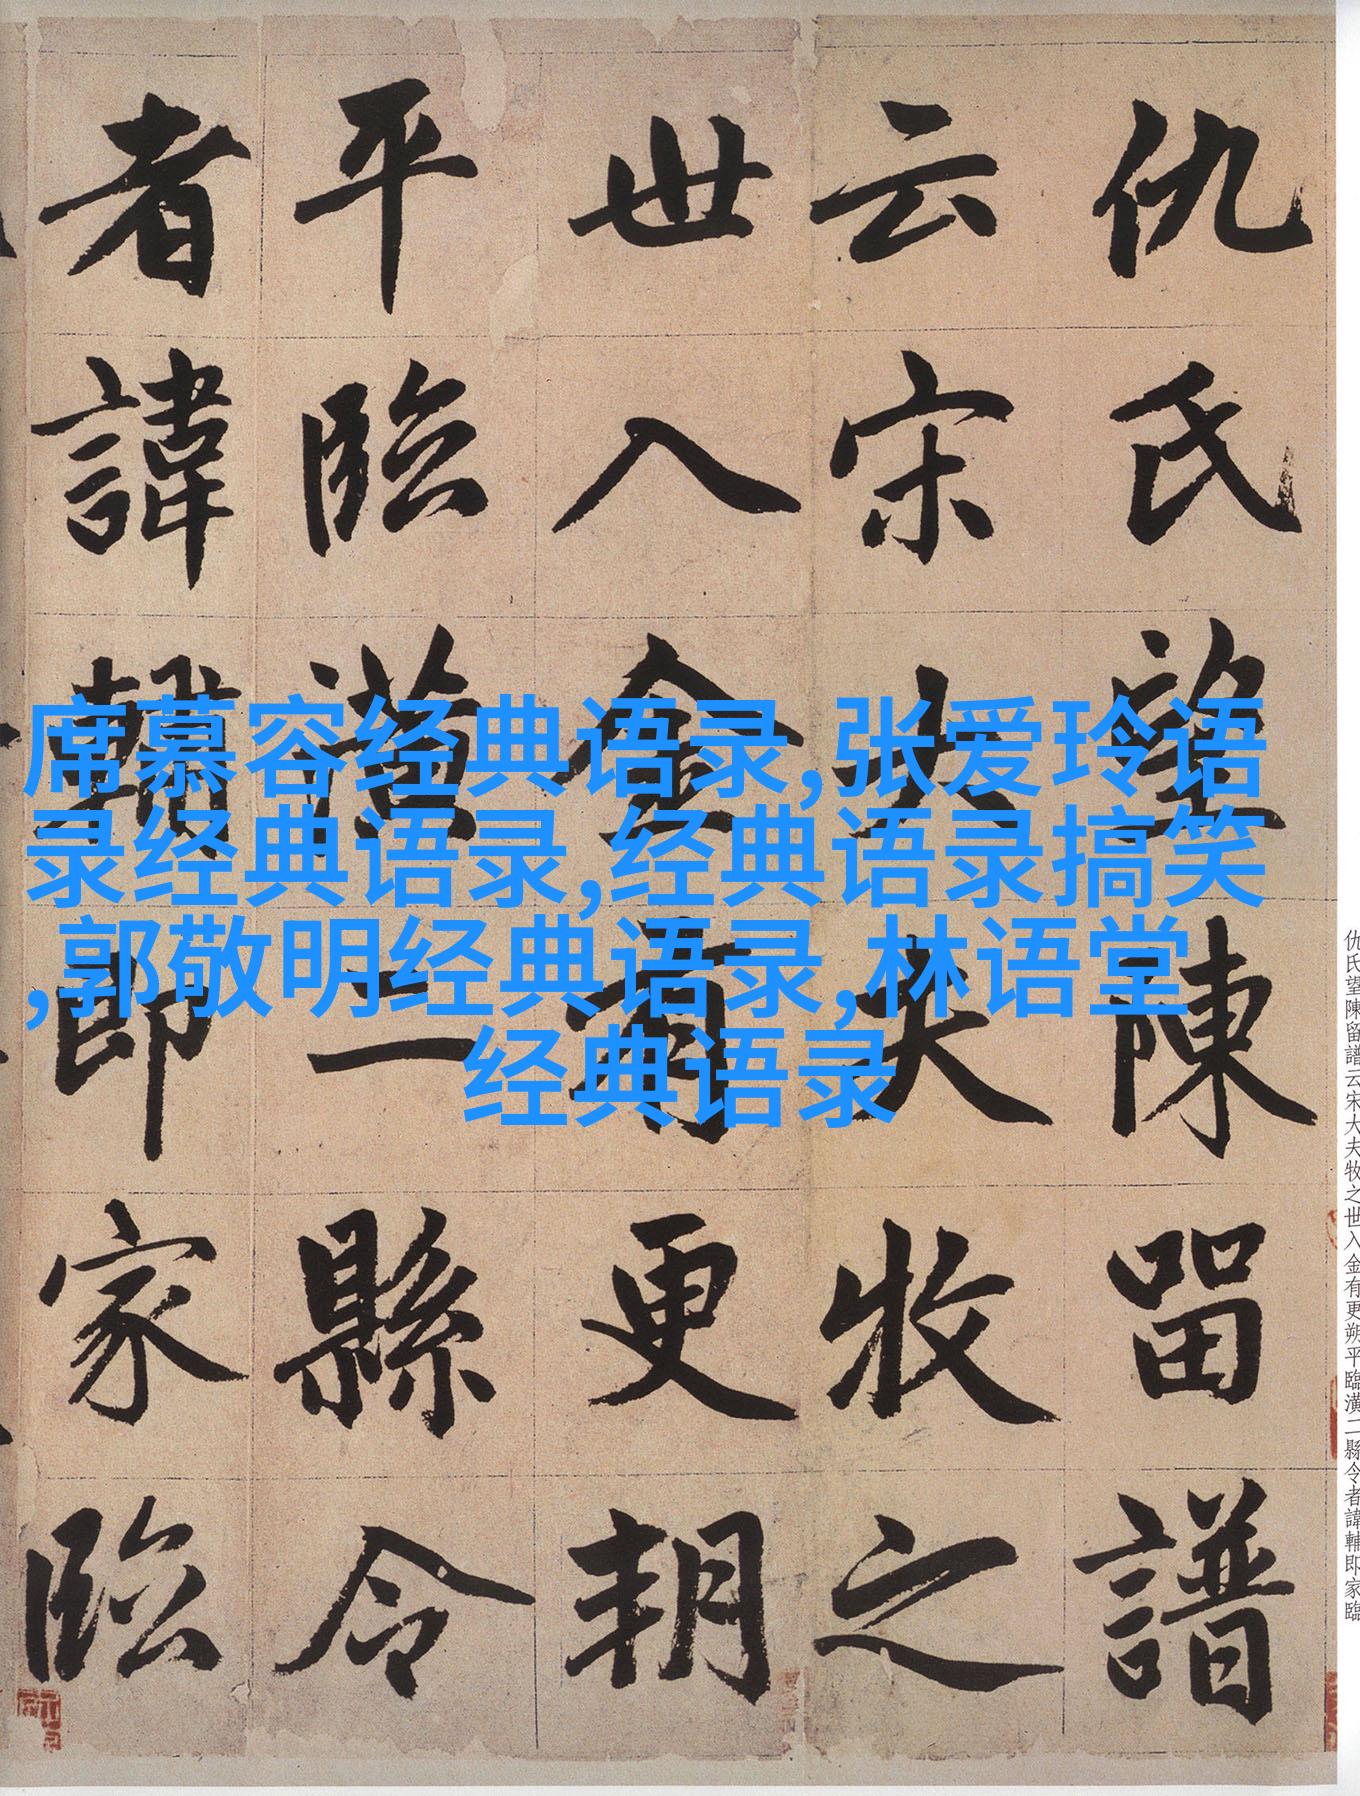 仇氏望陳留譜
云宋大夫牧之
世入金有更朔
平臨潢二縣令
者諱輔即家臨
席慕容经典语录,张爱玲语
录经典语录,经典语录搞笑
,郭敬明经典语录,林语堂
经典语录
仇氏望陳留譜云宋大夫牧之世入金有更朔平臨潢二縣令者諱輔即家臨